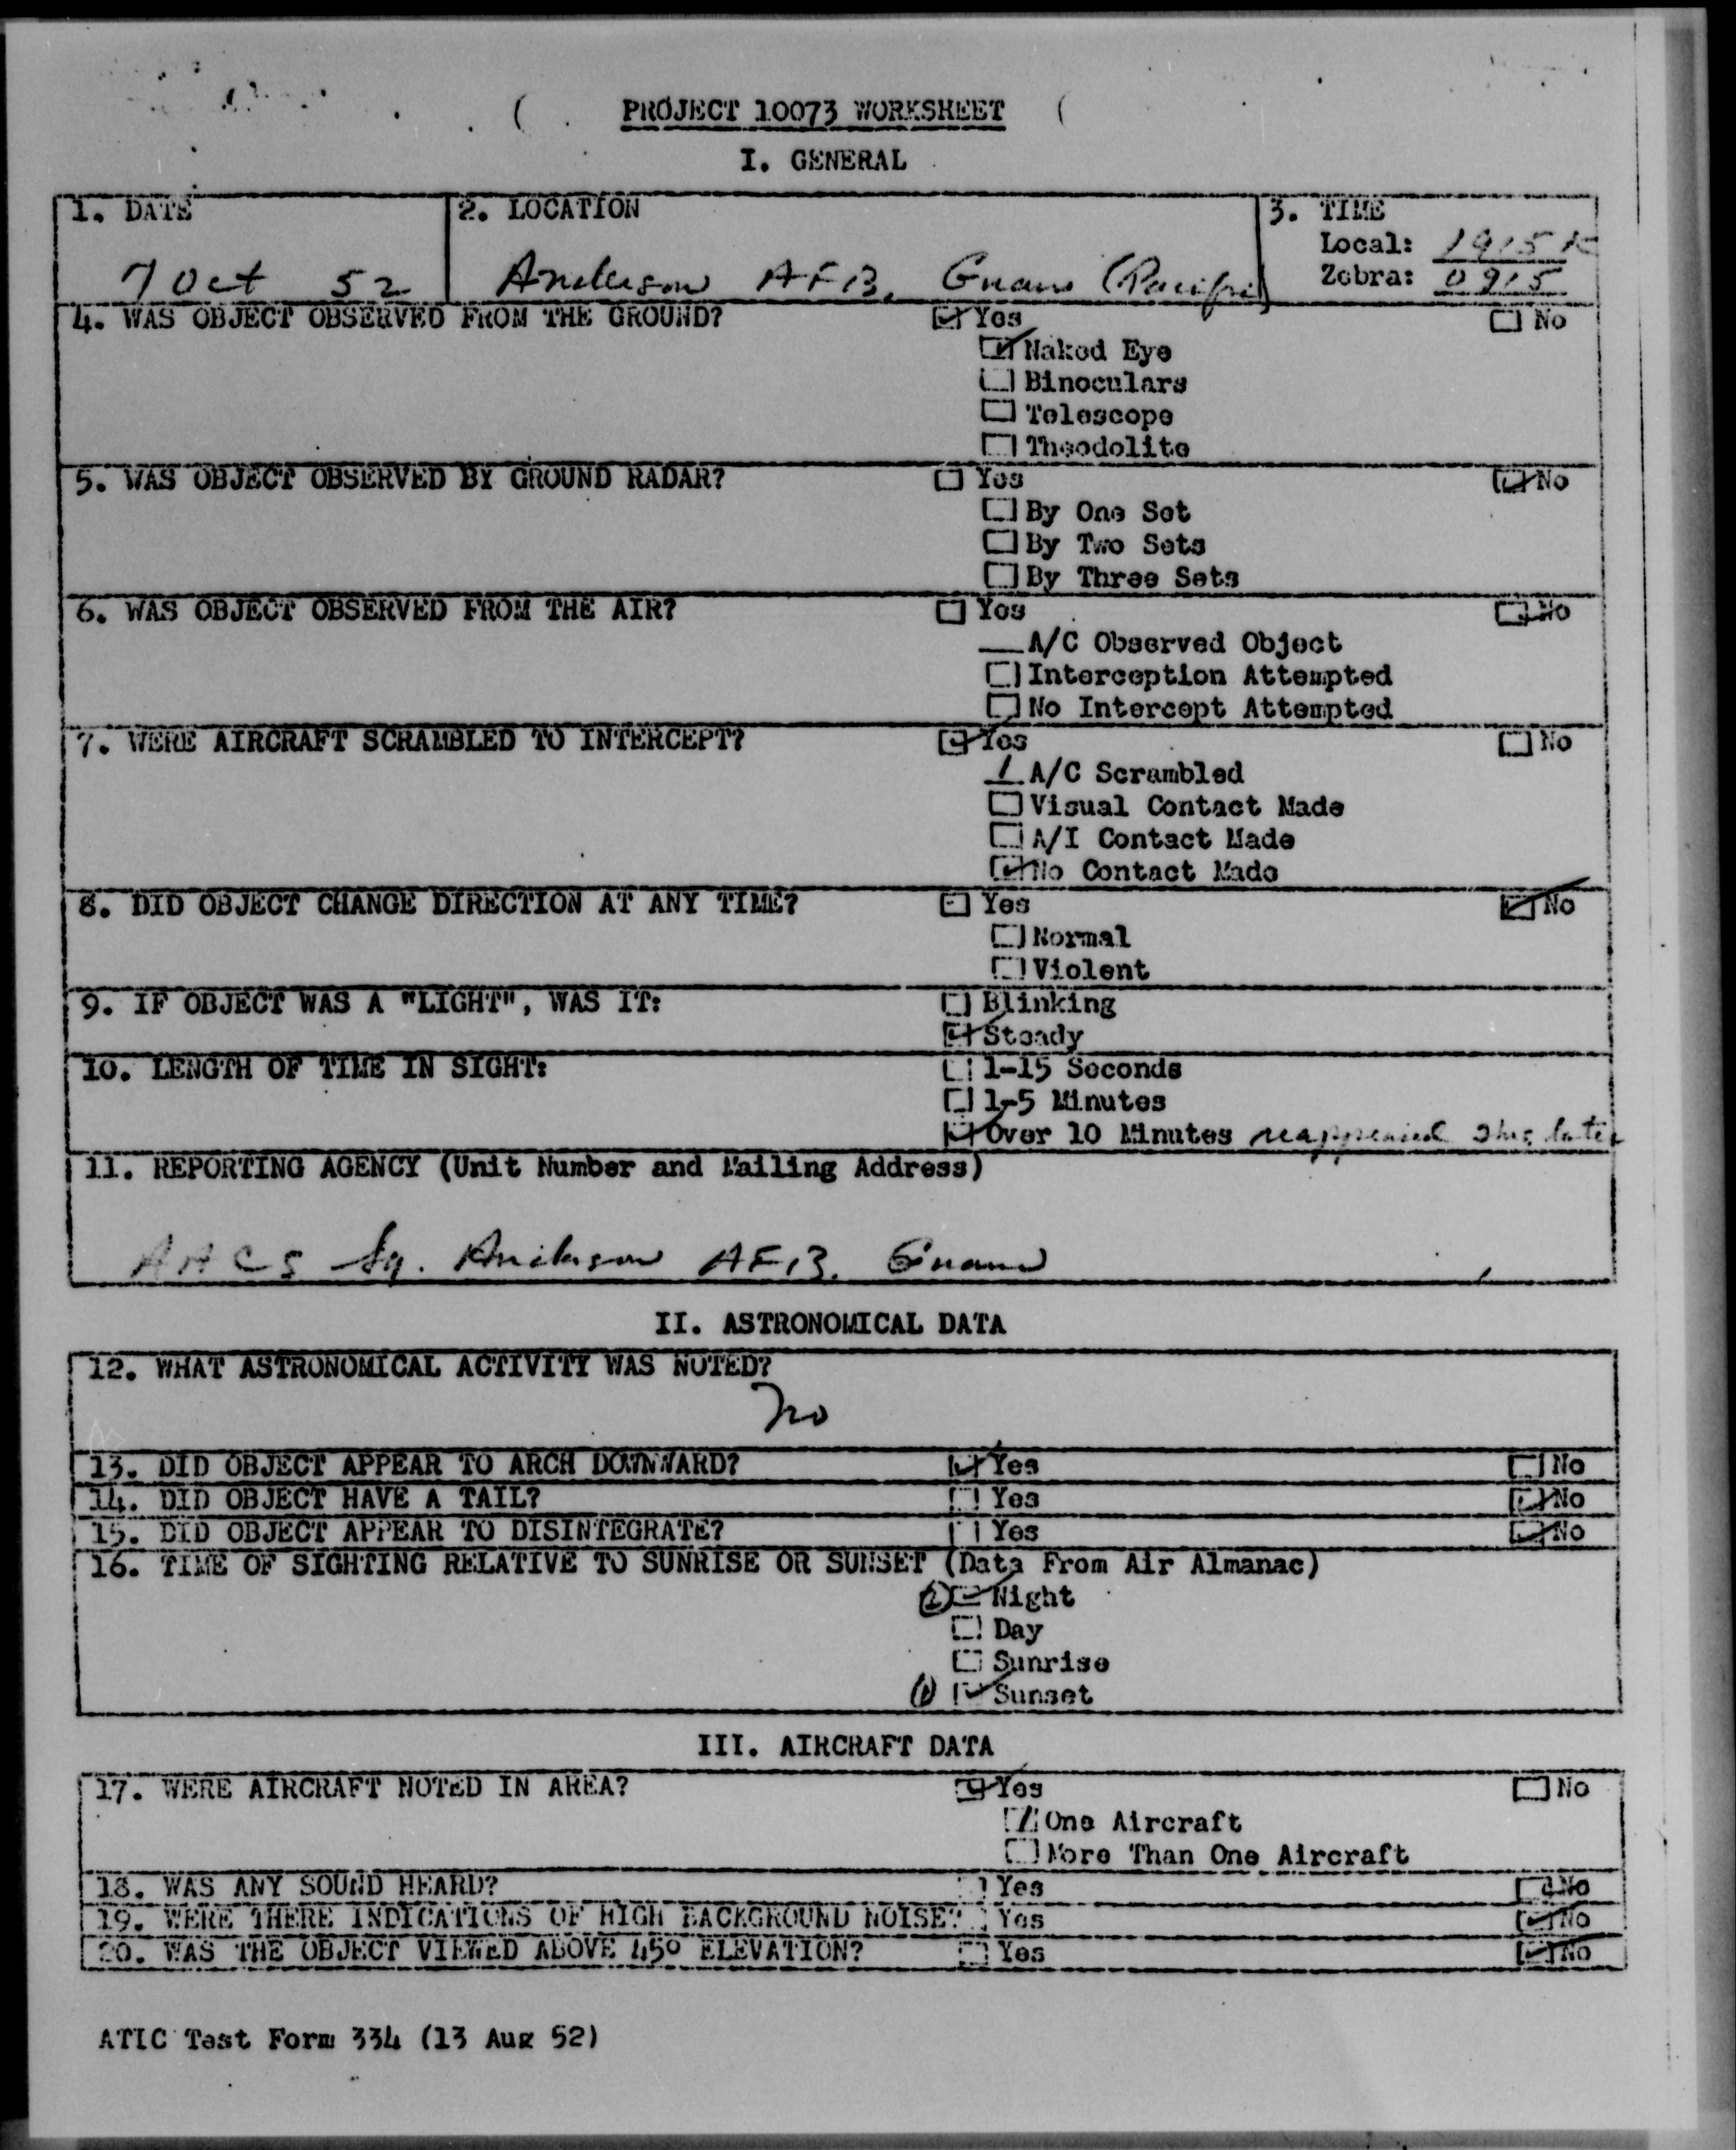 PROJECT 10073 WORKSHEET
I. GENERAL
1. DATE
7 Oct 52
2. LOCATION
Anderson AFB, Guam (Pacific)
3. TIME
Local: 1915 K
Zebra: 0915
4. WAS OBJECT OBSERVED FROM THE GROUND?
Yes
No
Naked Eye
Binoculars
Telescope
Theodolite
5. WAS OBJECT OBSERVED BY GROUND RADAR?
Yes
No
By One Set
By Two Sets
By Three Sets
6. WAS OBJECT OBSERVED FROM THE AIR?
Yes
No
A/C Observed Object
Interception Attempted
No Intercept Attempted
7. WERE AIRCRAFT SCRAMBLED TO INTERCEPT?
Yes
No
1 A/C Scrambled
Visual Contact Made
A/I Contact Made
No Contact Made
8. DID OBJECT CHANGE DIRECTION AT ANY TIME?
Yes
No
Normal
Violent
9. IF OBJECT WAS A "LIGHT", WAS IT:
Blinking
Steady
10. LENGTH OF TIME IN SIGHT:
1-15 Seconds
1-5 Minutes
Over 10 Minutes reappeared later
11. REPORTING AGENCY (Unit Number and Mailing Address)
AACS Sq. Anderson AFB. Guam
II. ASTRONOMICAL DATA
12. WHAT ASTRONOMICAL ACTIVITY WAS NOTED?
no
13. DID OBJECT APPEAR TO ARCH DOWNWARD?
Yes
No
14. DID OBJECT HAVE A TAIL?
Yes
No
15. DID OBJECT APPEAR TO DISINTEGRATE?
Yes
No
16. TIME OF SIGHTING RELATIVE TO SUNRISE OR SUNSET (Data From Air Almanac)
(2) Night
Day
Sunrise
(1) Sunset
III. AIRCRAFT DATA
17. WERE AIRCRAFT NOTED IN AREA?
Yes
No
One Aircraft
More Than One Aircraft
18. WAS ANY SOUND HEARD?
Yes
No
19. WERE THERE INDICATIONS OF HIGH BACKGROUND NOISE?
Yes
No
20. WAS THE OBJECT VIEWED ABOVE 45° ELEVATION?
Yes
No
ATIC Test Form 334 (13 Aug 52)